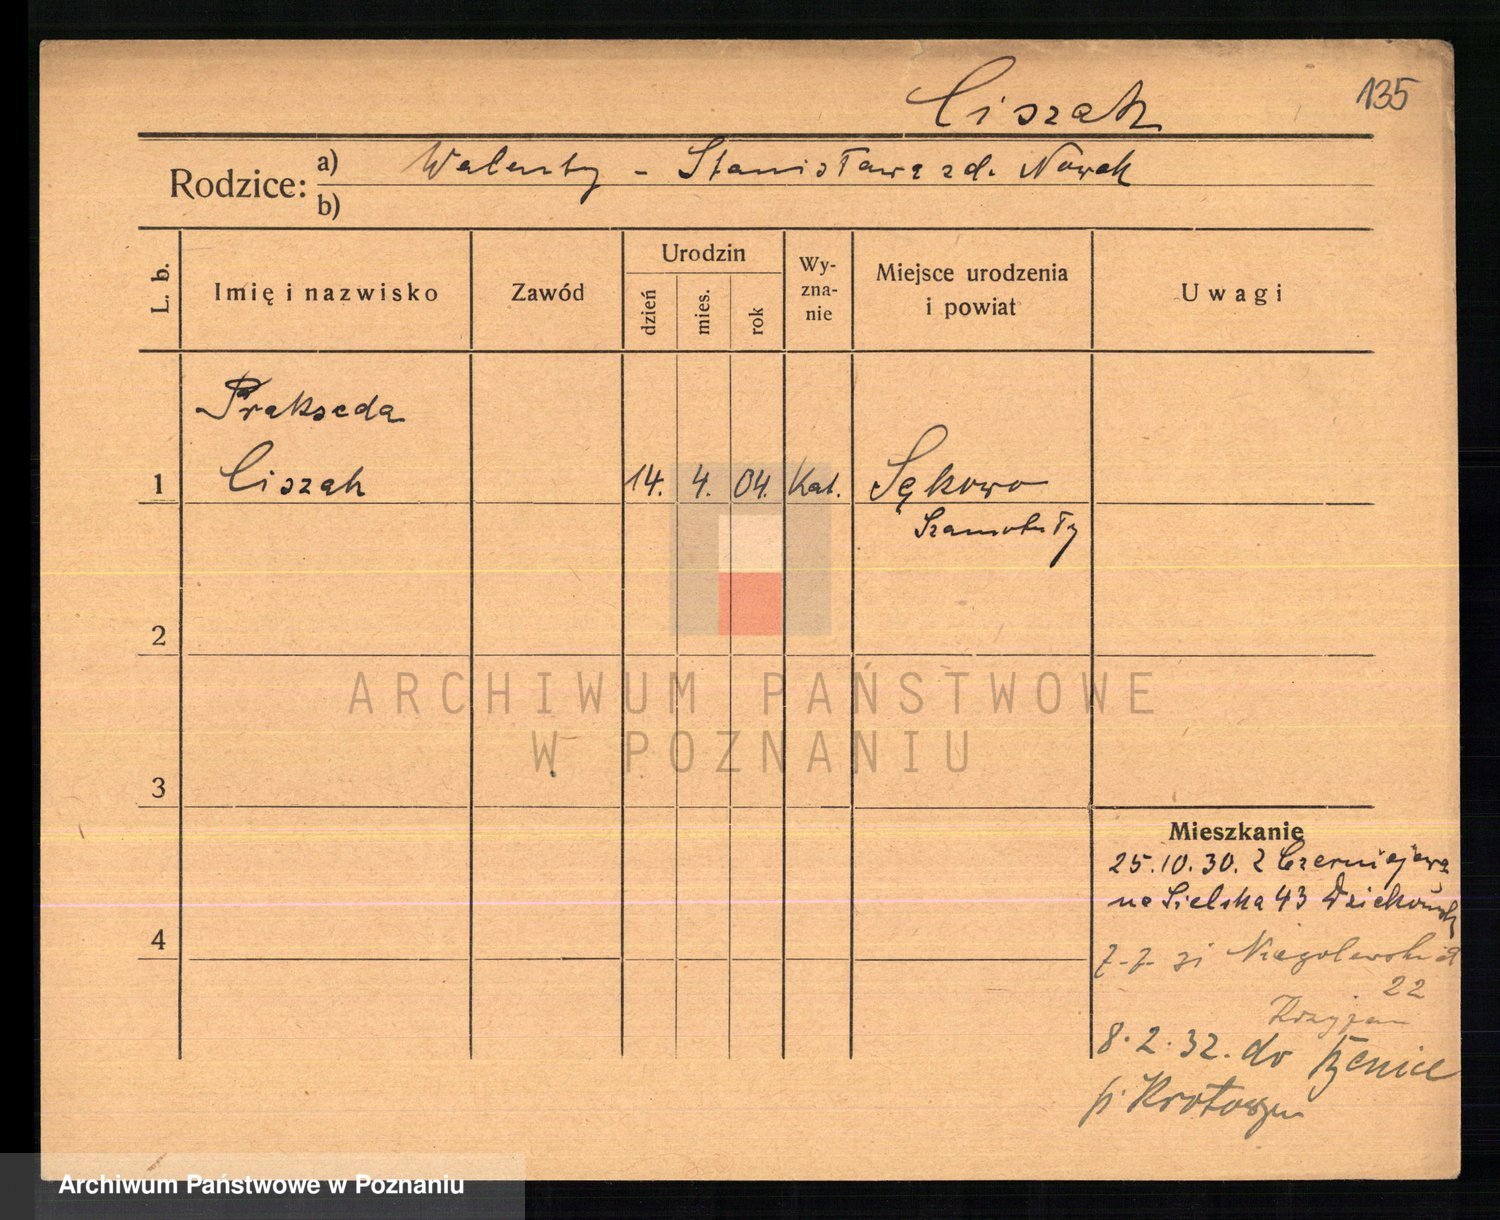 Ciszak
135
Rodzice: a) Walenty - Stanisława zd. Nowak
b)
L. b.
Imię i nazwisko
Zawód
Urodzin
dzień
mies.
rok
Wy-
zna-
nie
Miejsce urodzenia
i powiat
Uwagi
Prakseda
1 Ciszak 14. 4. 04. Kat. Sękowo
Szamotuły
2
ARCHIWUM PAŃSTWOWE
W POZNANIU
3
Mieszkanie
25.10.30. z Czerniejewa
na Sielska 43
4
Niegolewskich
22
8.2.32. do
p. Krotoszyn
Archiwum Państwowe w Poznaniu